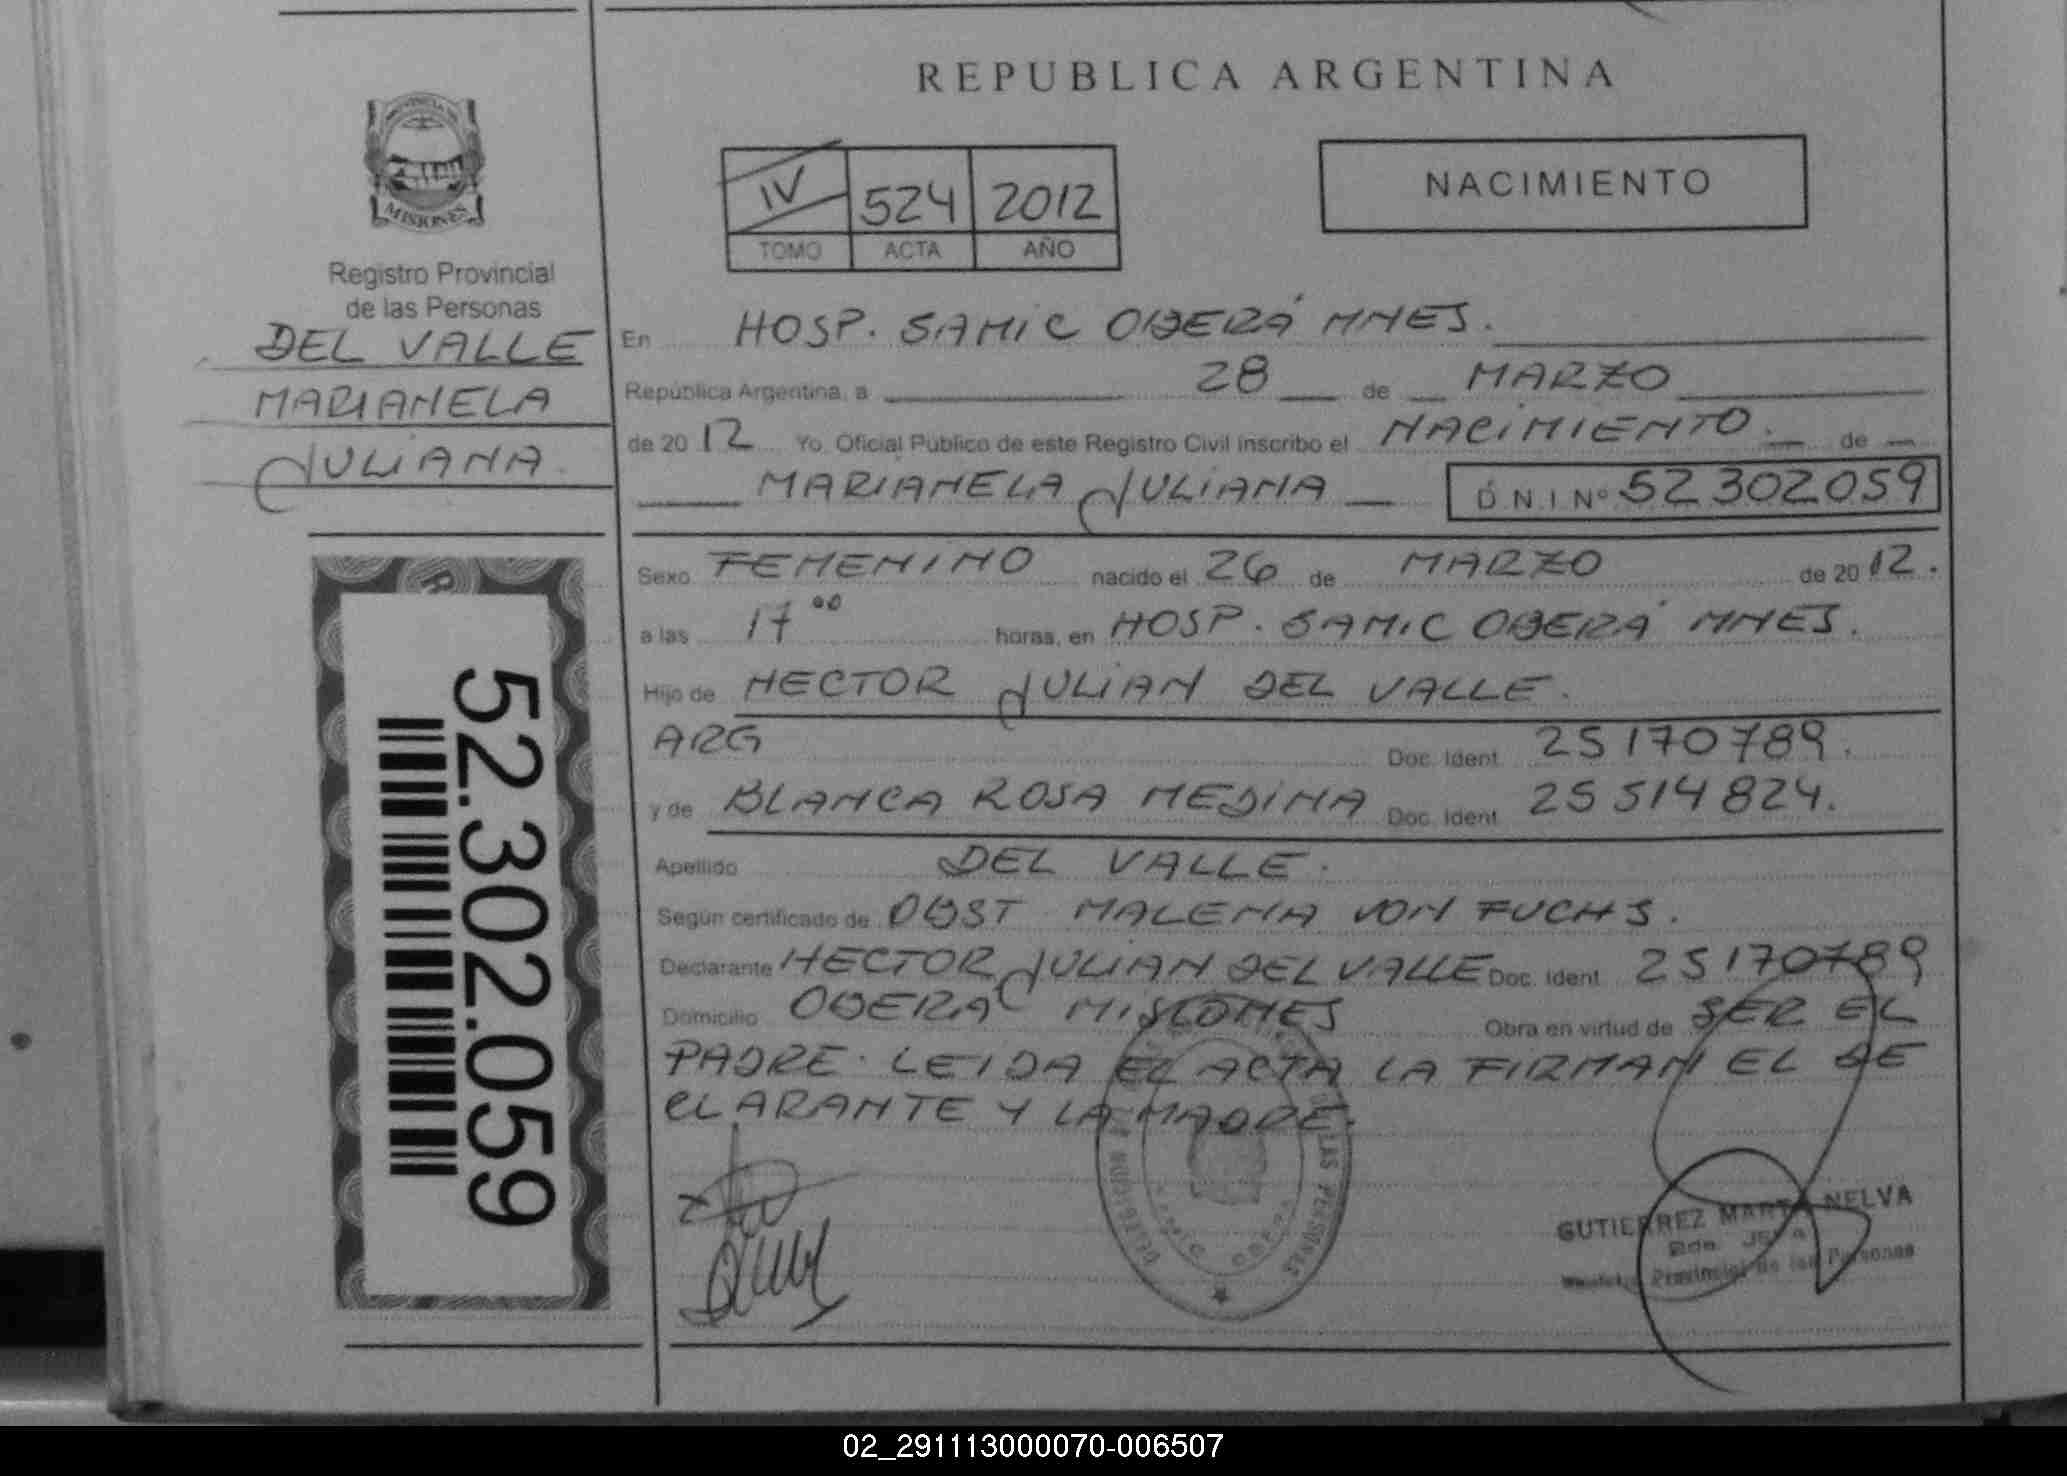 REPUBLICA ARGENTINA
PROVINCIA DE
MISIONES
Registro Provincial
de las Personas
DEL VALLE
MARIANELA
JULIANA
IV 524 2012
TOMO ACTA AÑO
NACIMIENTO
En HOSP. SAMIC OBERÁ MNES.
República Argentina, a 28 de MARZO
de 2012 Yo, Oficial Público de este Registro Civil inscribo el NACIMIENTO. de
MARIANELA JULIANA D.N.I Nº 52302059
Sexo FEMENINO nacido el 26 de MARZO de 2012.
a las 17 00 horas, en HOSP. SAMIC OBERÁ MNES.
Hijo de HECTOR JULIAN DEL VALLE.
ARG Doc. Ident. 25170789.
y de BLANCA ROSA MEDINA Doc. Ident. 25514824.
Apellido DEL VALLE.
Según certificado de OBST MALENA VON FUCHS.
Declarante HECTOR JULIAN DEL VALLE Doc. Ident. 25170789
Domicilio OBERÁ MISIONES Obra en virtud de SER EL
PADRE. LEIDA EL ACTA LA FIRMAN EL DE
CLARANTE Y LA MADRE.
52.302.059
LAS PERSONAS
SAMIC OBERA
GUTIERREZ MARTA NELVA
Provincial de las Personas
02_291113000070-006507